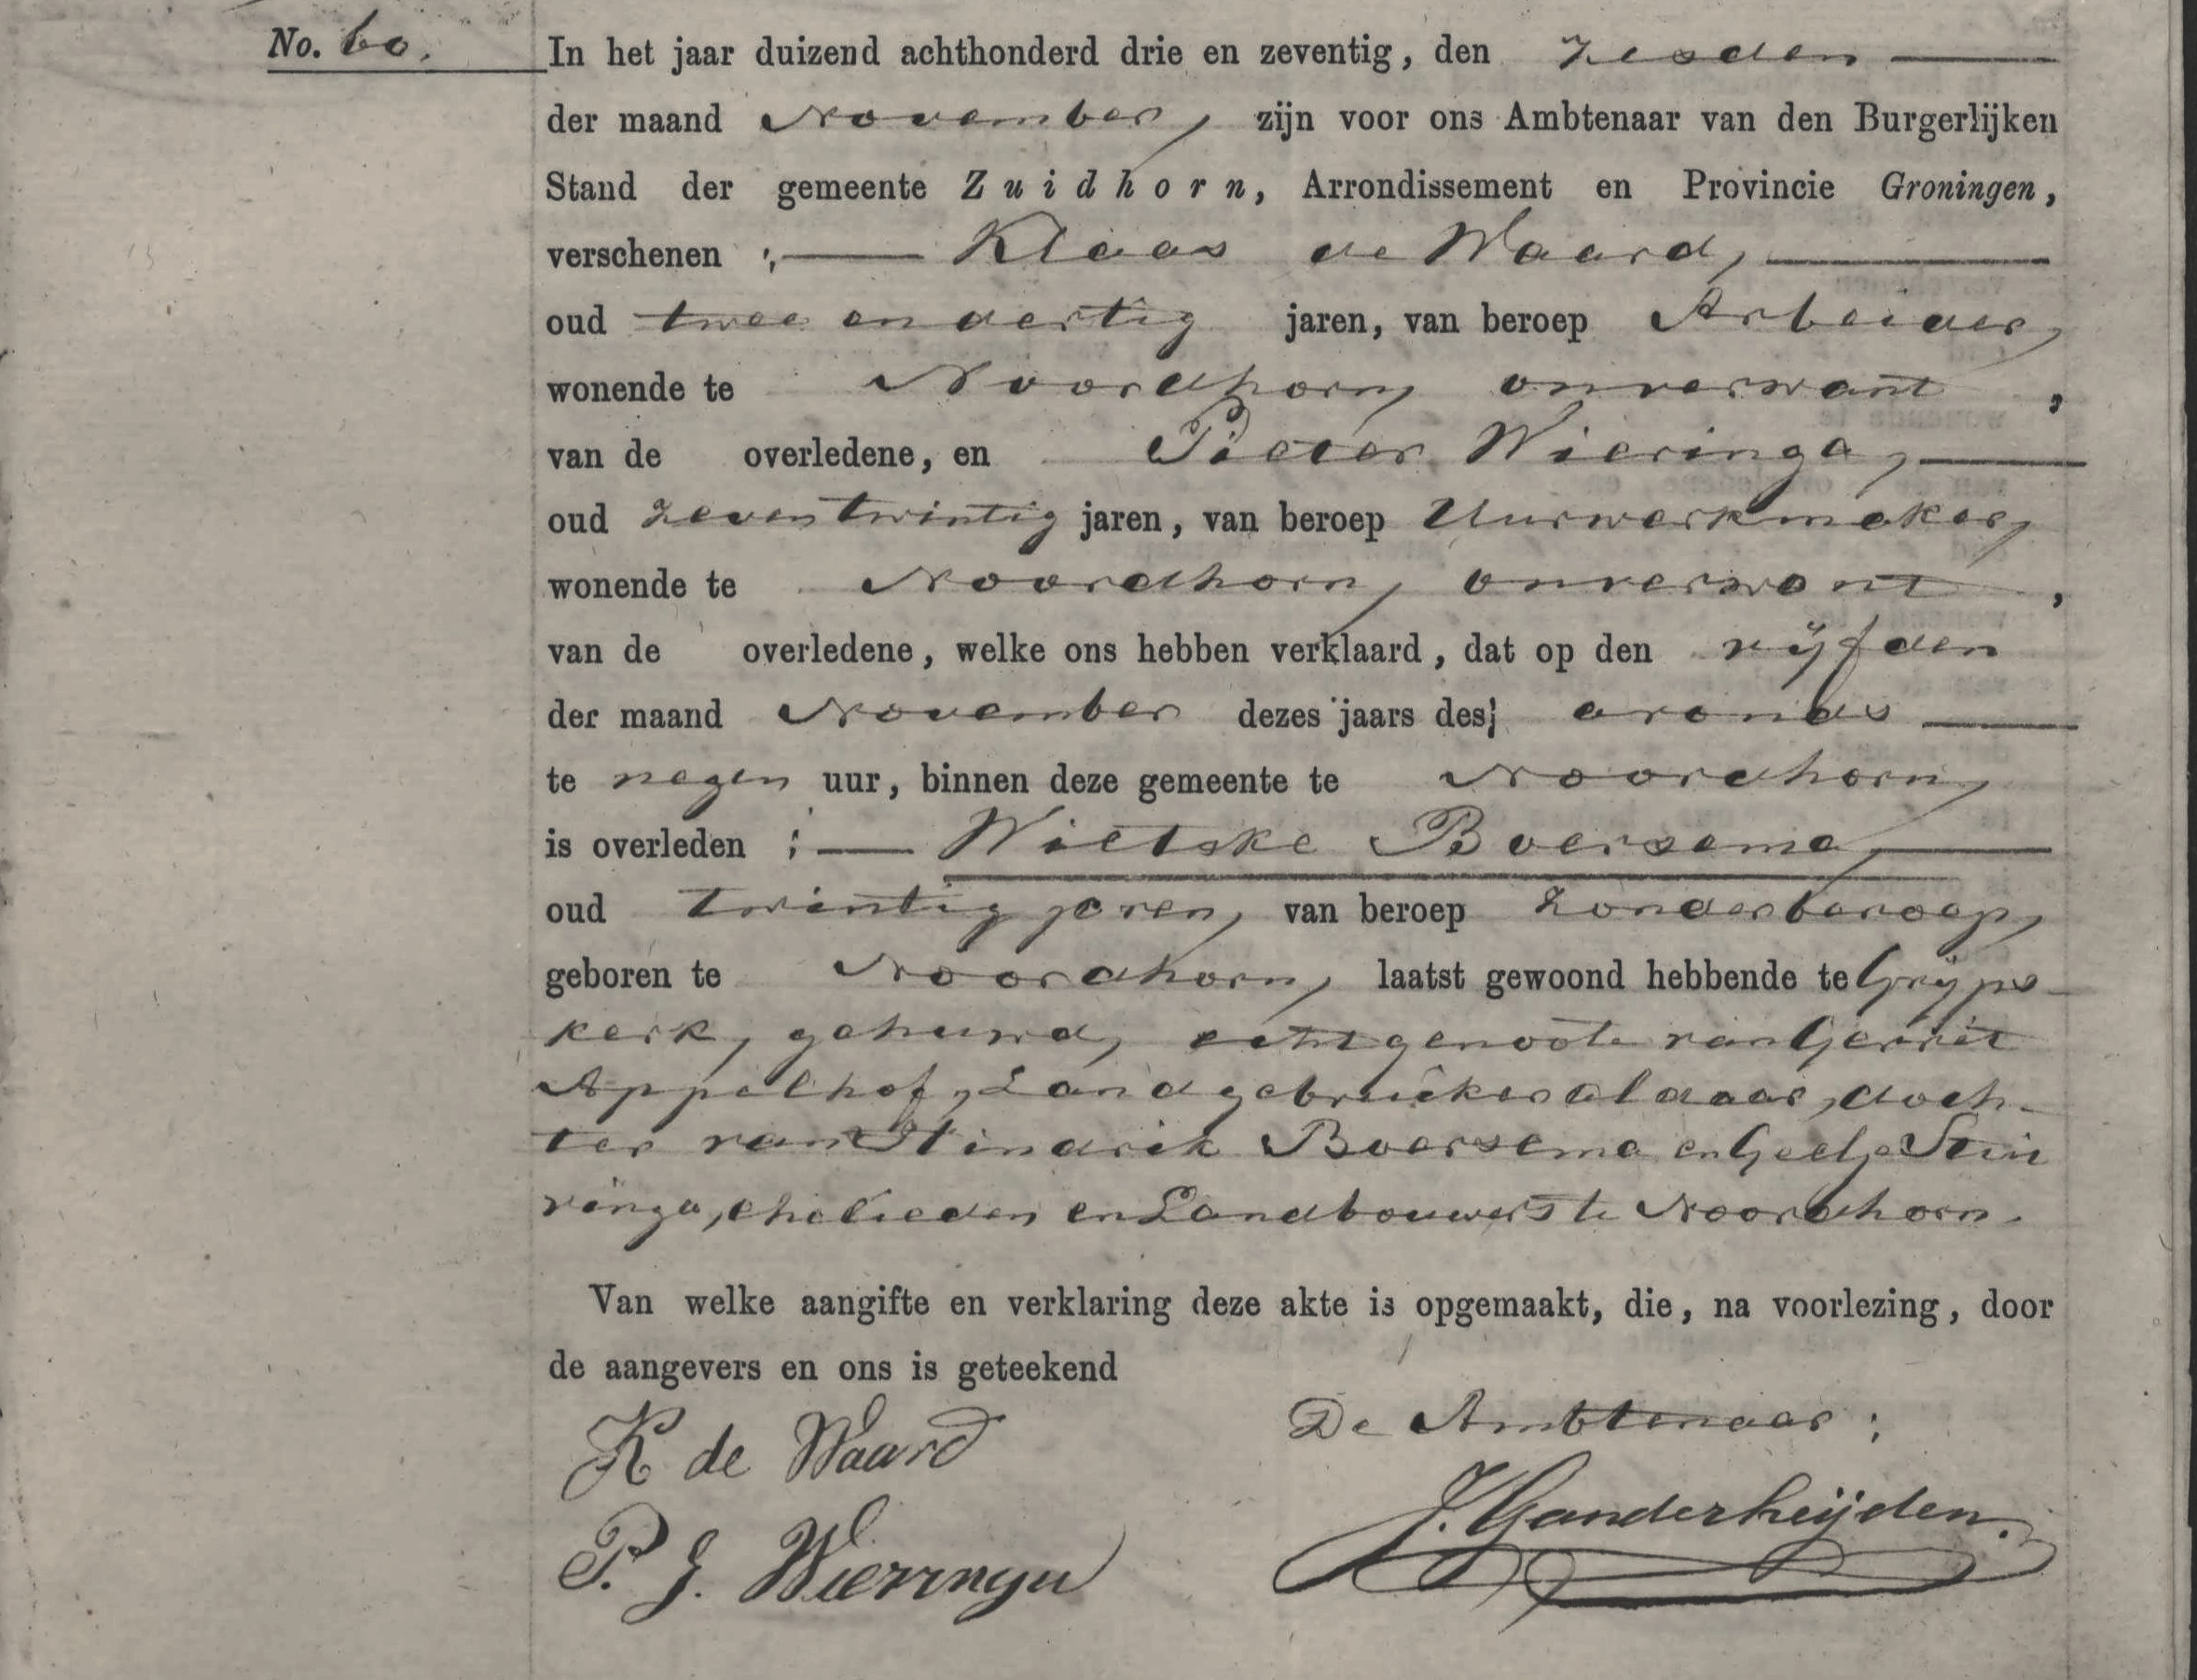 No. 60.
In het jaar duizend achthonderd drie en zeventig, den zesden
der maand November, zijn voor ons Ambtenaar van den Burgerlijken
Stand der gemeente Zuidhorn, Arrondissement en Provincie Groningen,
verschenen ; Klaas de Waard,
oud twee en dertig jaren, van beroep Arbeider,
wonende te Noordhorn, onverwant ,
van de overledene, en Pieter Wieringa,
oud zeven twintig jaren, van beroep Uurwerkmaker,
wonende te Noordhorn, onverwant ,
van de overledene, welke ons hebben verklaard, dat op den vijfden
der maand November dezes jaars des avonds
te negen uur, binnen deze gemeente te Noordhorn,
is overleden ; Wietske Boersema,
oud twintig jaren, van beroep zonder beroep,
geboren te Noordhorn, laatst gewoond hebbende te Grijps-
kerk, gehuwd, echtgenoote van Gerrit
Appelhof, Landgebruiker aldaar, doch-
ter van Hindrik Boersema en Geelje
ringa, ehelieden en Landbouwers te Noordhorn.
Van welke aangifte en verklaring deze akte is opgemaakt, die, na voorlezing, door
de aangevers en ons is geteekend
K de Waard
De Ambtenaar ;
J. Ganderheijden.
P. J. Wieringa